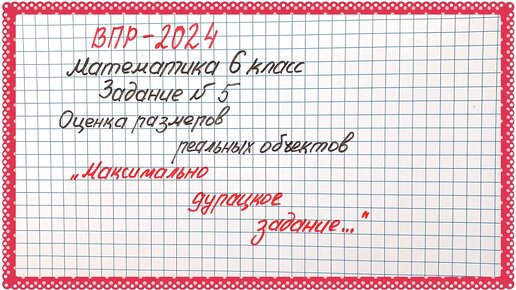 ВПР-2024
Математика 6 класс
Задание № 5
Оценка размеров
реальных объектов
„Максимально
дурацкое
задание..."